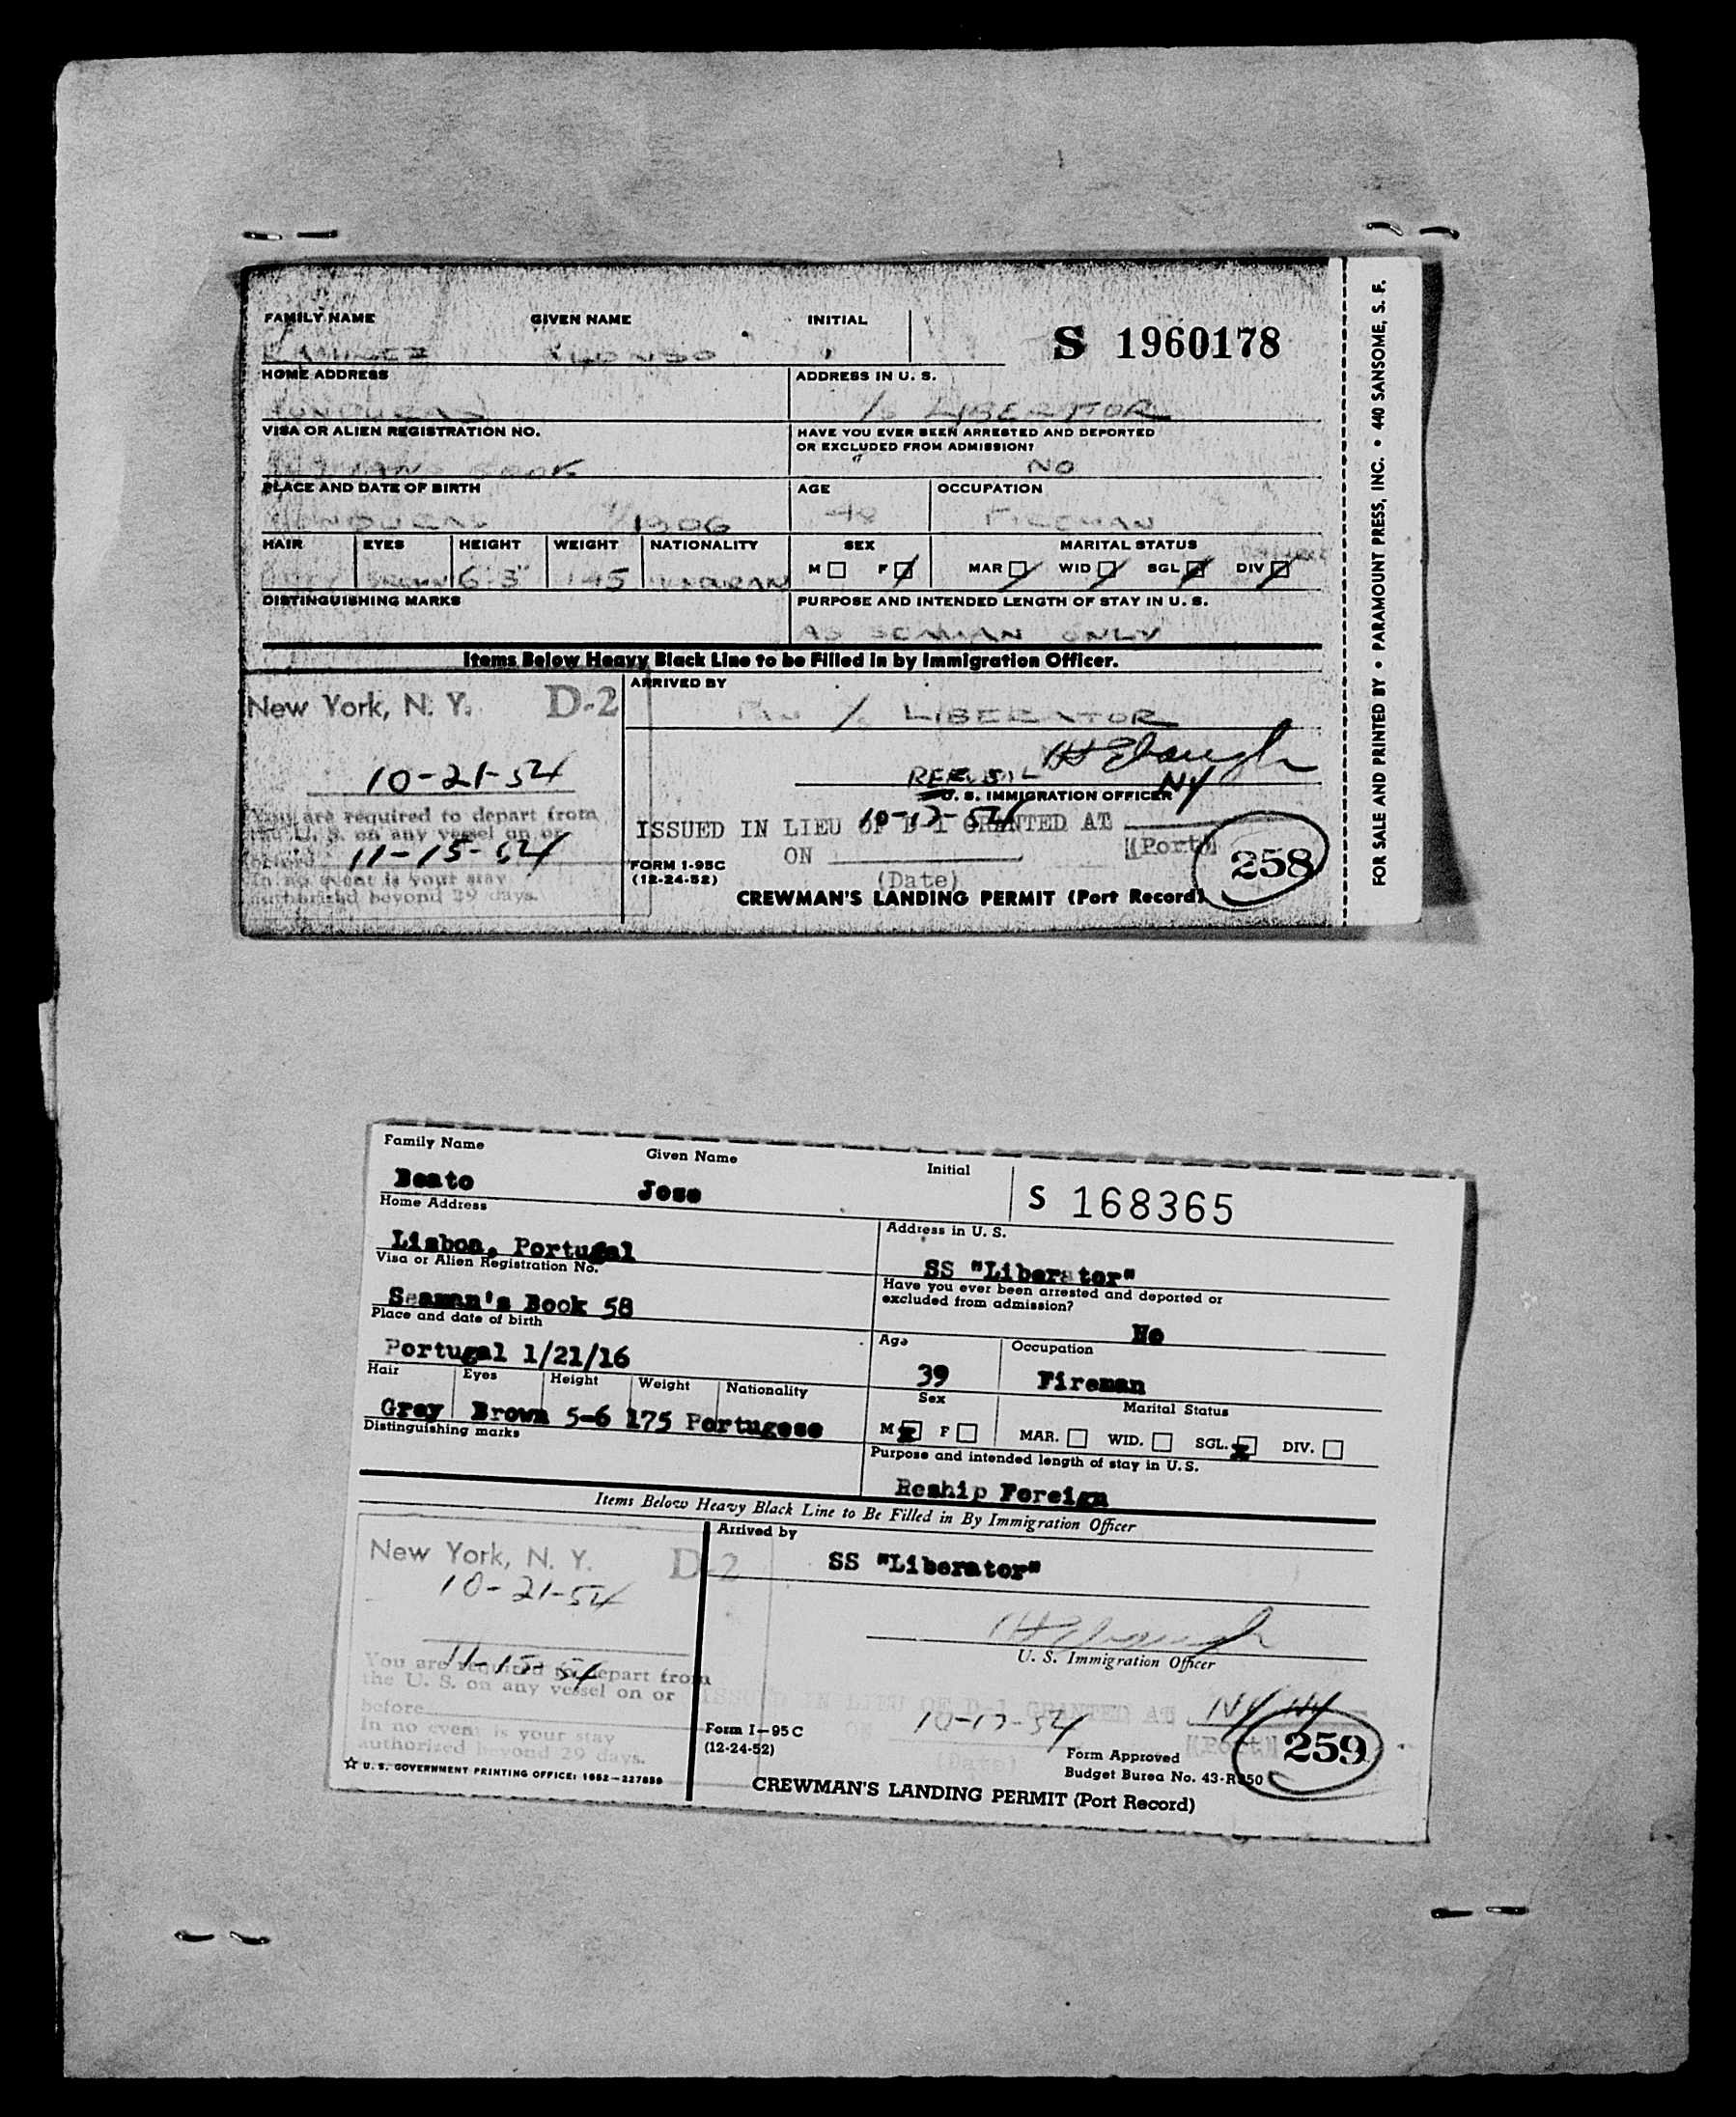 FAMILY NAME GIVEN NAME INITIAL
S 1960178
RAMIREZ ALONSO
HOME ADDRESS ADDRESS IN U. S.
HONDURAS % LIBERATOR
VISA OR ALIEN REGISTRATION NO. HAVE YOU EVER BEEN ARRESTED AND DEPORTED
OR EXCLUDED FROM ADMISSION?
BOOK NO
PLACE AND DATE OF BIRTH AGE OCCUPATION
HONDURAS 1906 48 FIREMAN
HAIR EYES HEIGHT WEIGHT NATIONALITY SEX MARITAL STATUS
BROWN 6'3" 145 M F MAR WID SGL DIV
DISTINGUISHING MARKS PURPOSE AND INTENDED LENGTH OF STAY IN U. S.
AS SEAMAN ONLY
Items Below Heavy Black Line to be Filled in by Immigration Officer.
New York, N. Y. D-2 ARRIVED BY
% LIBERATOR
10-21-54
U. S. IMMIGRATION OFFICER NY
You are required to depart from
the U. S. on any vessel on or
before 11-15-54
In no event is your stay
authorized beyond 29 days.
ISSUED IN LIEU OF D-1 GRANTED AT
10-17-54
ON (Port)
(Date)
FORM I-95C
(12-24-52)
CREWMAN'S LANDING PERMIT (Port Record)
258
FOR SALE AND PRINTED BY • PARAMOUNT PRESS, INC. • 440 SANSOME, S. F.
Family Name Given Name Initial
Beato Jose S 168365
Home Address Address in U. S.
Lisbon, Portugal SS "Liberator"
Visa or Alien Registration No. Have you ever been arrested and deported or
excluded from admission?
Seaman's Book 58 No
Place and date of birth Age Occupation
Portugal 1/21/16 39 Fireman
Hair Eyes Height Weight Nationality Sex Marital Status
Grey Brown 5-6 175 Portugese M x F MAR. WID. SGL. x DIV.
Distinguishing marks Purpose and intended length of stay in U. S.
Reship Foreign
Items Below Heavy Black Line to Be Filled in By Immigration Officer
New York, N. Y. D-2 Arrived by
SS "Liberator"
10-21-54
U. S. Immigration Officer
11-15-54
You are required to depart from
the U. S. on any vessel on or
before
In no event is your stay
authorized beyond 29 days.
ISSUED IN LIEU OF D-1 GRANTED AT NY NY
ON 10-17-54 (Port)
(Date)
Form I-95C
(12-24-52)
Form Approved
Budget Burea No. 43-R350
259
☆ U. S. GOVERNMENT PRINTING OFFICE: 1952—227859
CREWMAN'S LANDING PERMIT (Port Record)